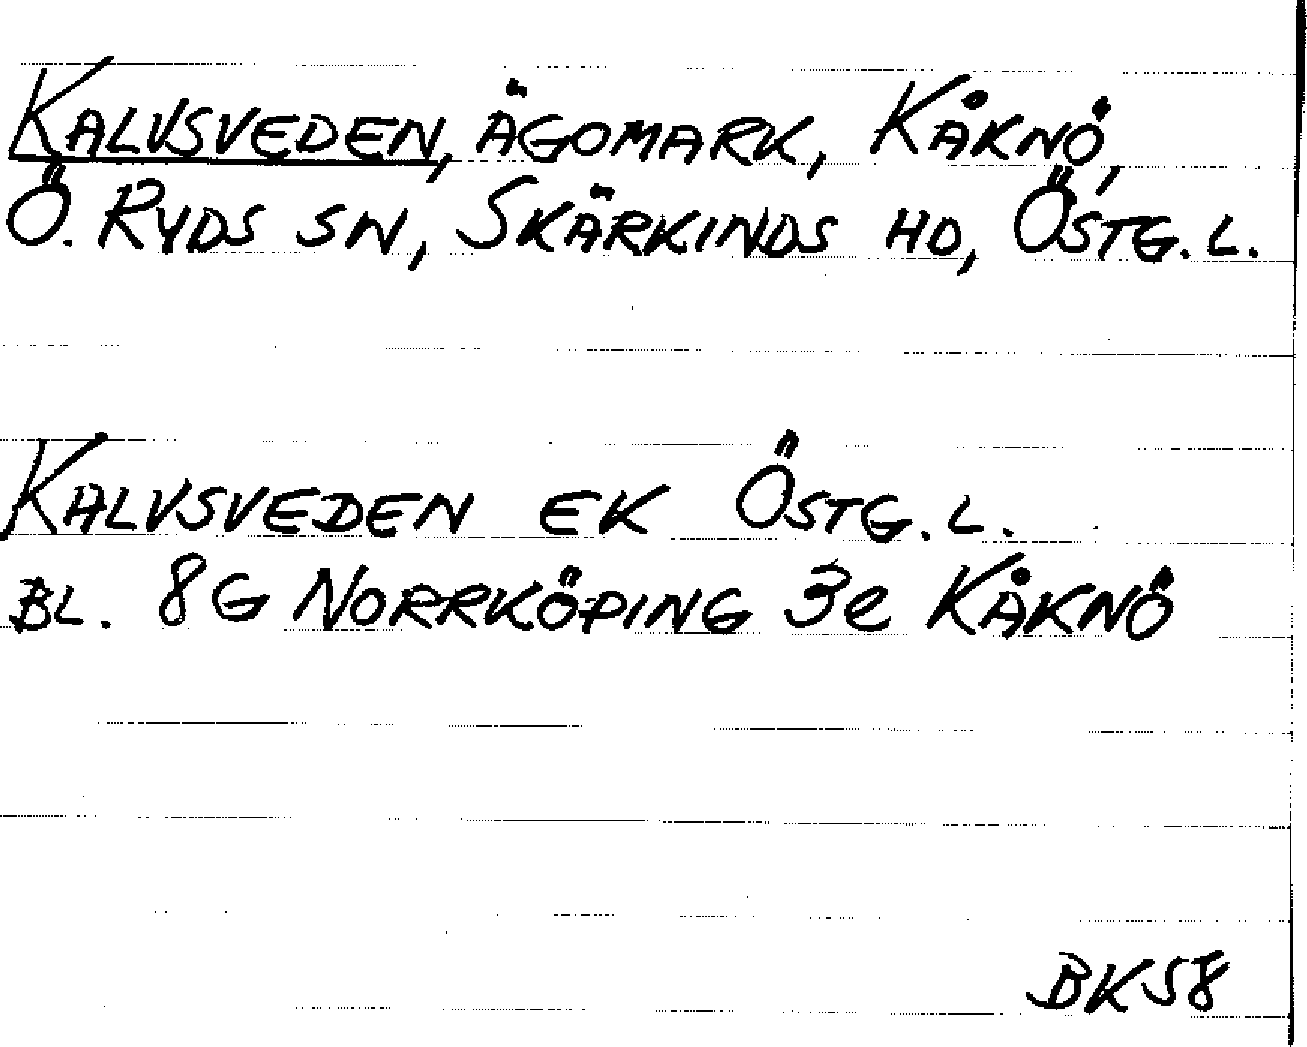 KALVSVEDEN, ÄGOMARK, KÅKNÖ,
Ö. RYDS SN, SKÄRKINDS HD, ÖSTG. L.
KALVSVEDEN EK ÖSTG. L.
BL. 8G NORRKÖPING 3e KÅKNÖ
BK58